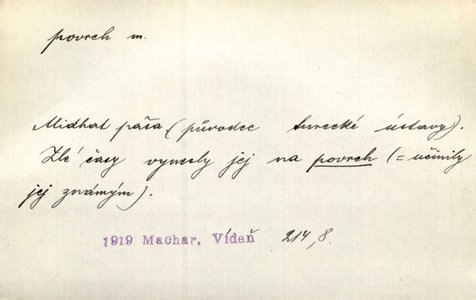 povrch m.
Midhat páša (původce turecké ústavy).
Zlé časy vynesly jej na povrch (= učinily
jej známým).
1919 Machar, Vídeň 214,8.